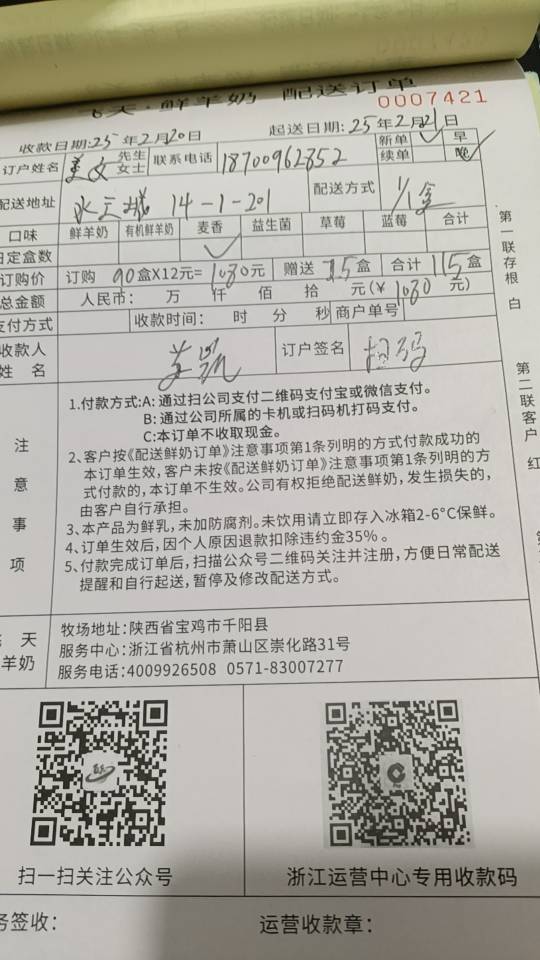 飞天·鲜羊奶 配送订单
0007421
收款日期:25年2月20日 起送日期:25年2月21日
订户姓名 先生 女士 联系电话 18700962352 新单 ✓ 早
续单 晚
配送地址 14-1-201 配送方式 1/盒
口味 鲜羊奶 有机鲜羊奶 麦香 益生菌 草莓 蓝莓 合计
日定盒数 ✓
订购价 订购 90盒X12元=1080元 赠送 25盒 合计 115盒
总金额 人民币: 万 仟 佰 拾 元(¥1080元)
支付方式 收款时间: 时 分 秒 商户单号
收款人
姓 名 订户签名 扫码
第一联存根 白
第二联客户 红
注意事项
1.付款方式:A:通过扫公司支付二维码支付宝或微信支付。
B:通过公司所属的卡机或扫码机打码支付。
C:本订单不收取现金。
2、客户按《配送鲜奶订单》注意事项第1条列明的方式付款成功的
本订单生效,客户未按《配送鲜奶订单》注意事项第1条列明的方
式付款的,本订单不生效。公司有权拒绝配送鲜奶,发生损失的,
由客户自行承担。
3、本产品为鲜乳,未加防腐剂。未饮用请立即存入冰箱2-6°C保鲜。
4、订单生效后,因个人原因退款扣除违约金35%。
5、付款完成订单后,扫描公众号二维码关注并注册,方便日常配送
提醒和自行起送,暂停及修改配送方式。
天
羊奶
牧场地址:陕西省宝鸡市千阳县
服务中心:浙江省杭州市萧山区崇化路31号
服务电话:4009926508 0571-83007277
扫一扫关注公众号 浙江运营中心专用收款码
务签收: 运营收款章: